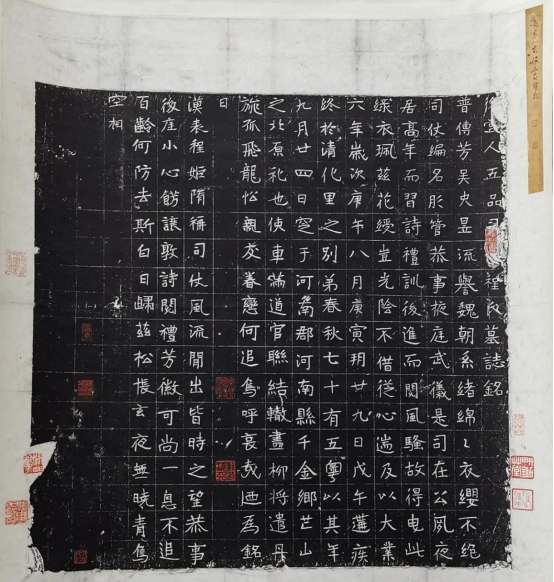 後宮人五品司仗程氏墓誌銘
普傳芳吴史昱流舉魏朝系緒綿〻衣纓不絕
司仗編名彤管恭事掖庭武儀是司在公夙夜
居高年而習詩禮訓後進而閱風騷故得電此
綵衣珮兹花綬豈光陰不借從心遄及以大業
六年歲次庚午八月庚寅玥廿九日戊午遘疾
終於清化里之別弟春秋七十有五粵以其年
九月廿四日窆于河南郡河南縣千金鄉芒山
之北原礼也使車滿道官聯結轍畫柳將遣丹
旐孤飛龍忪親交眷戀何追烏呼哀哉迺為銘
曰
漢表程姬隋稱司仗風流閒出皆時之望恭事
後庭小心飭讓敦詩閱禮芳徽可尚一息不追
百齡何防去斯白日歸兹松悵玄夜無曉青烏
空相